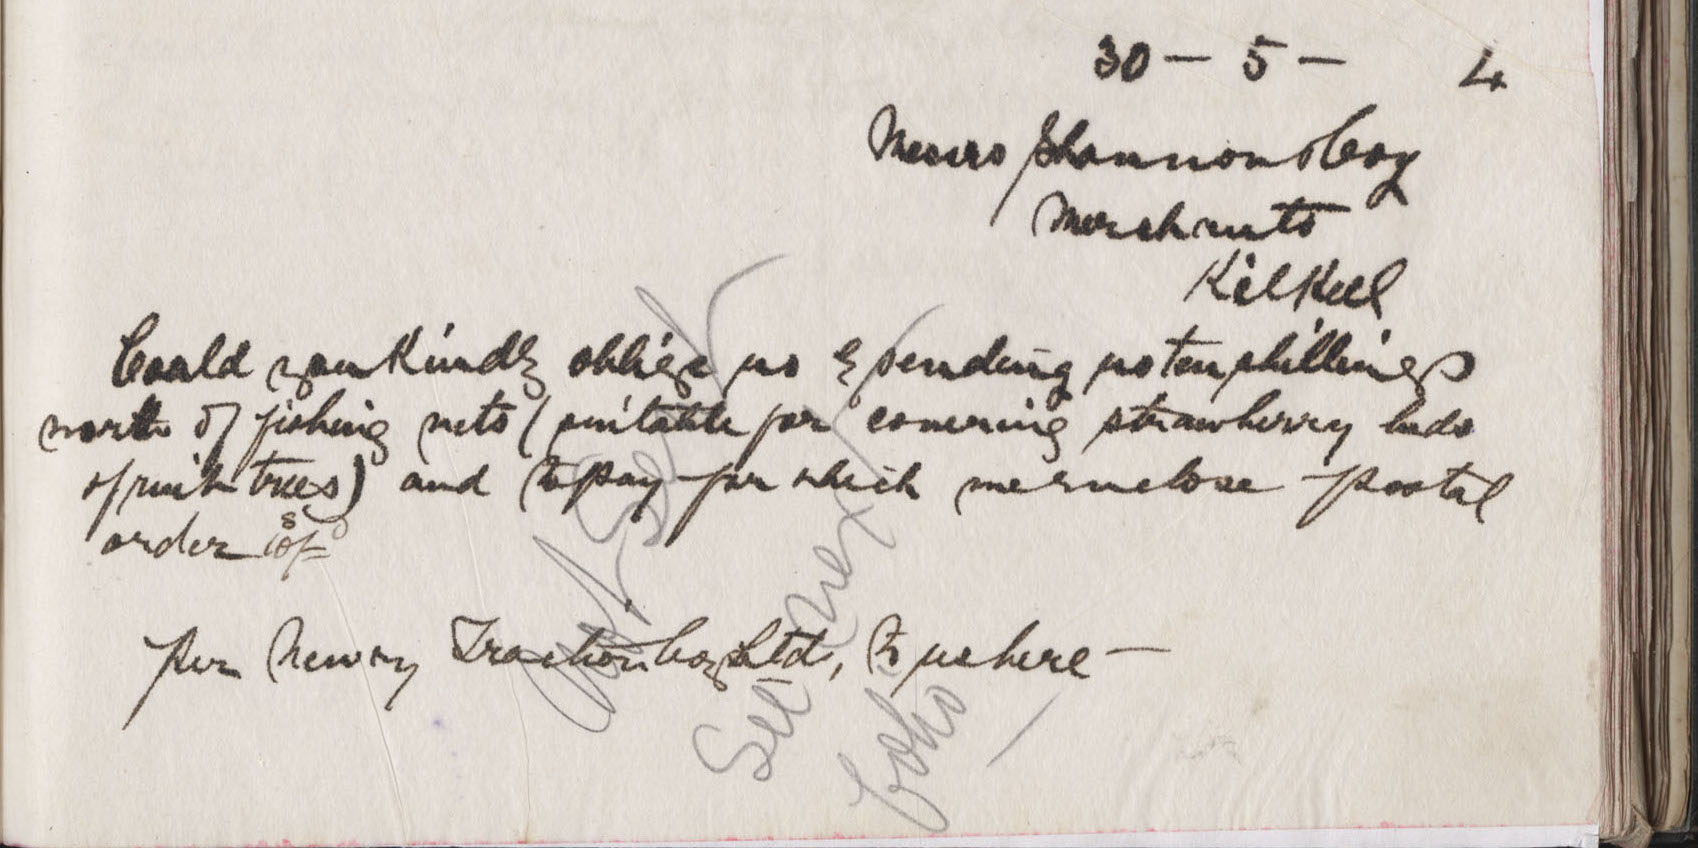 30 - 5 - 4
Messrs Shannon & Coy
Merchants
Kilkeel
Could you kindly oblige us by sending us ten shillings
worth of fishing nets (suitable for covering strawberry beds
& fruit trees) and to pay for which we enclose postal
order of
per Newry Traction Coy Ltd, to us here —
See next
folio